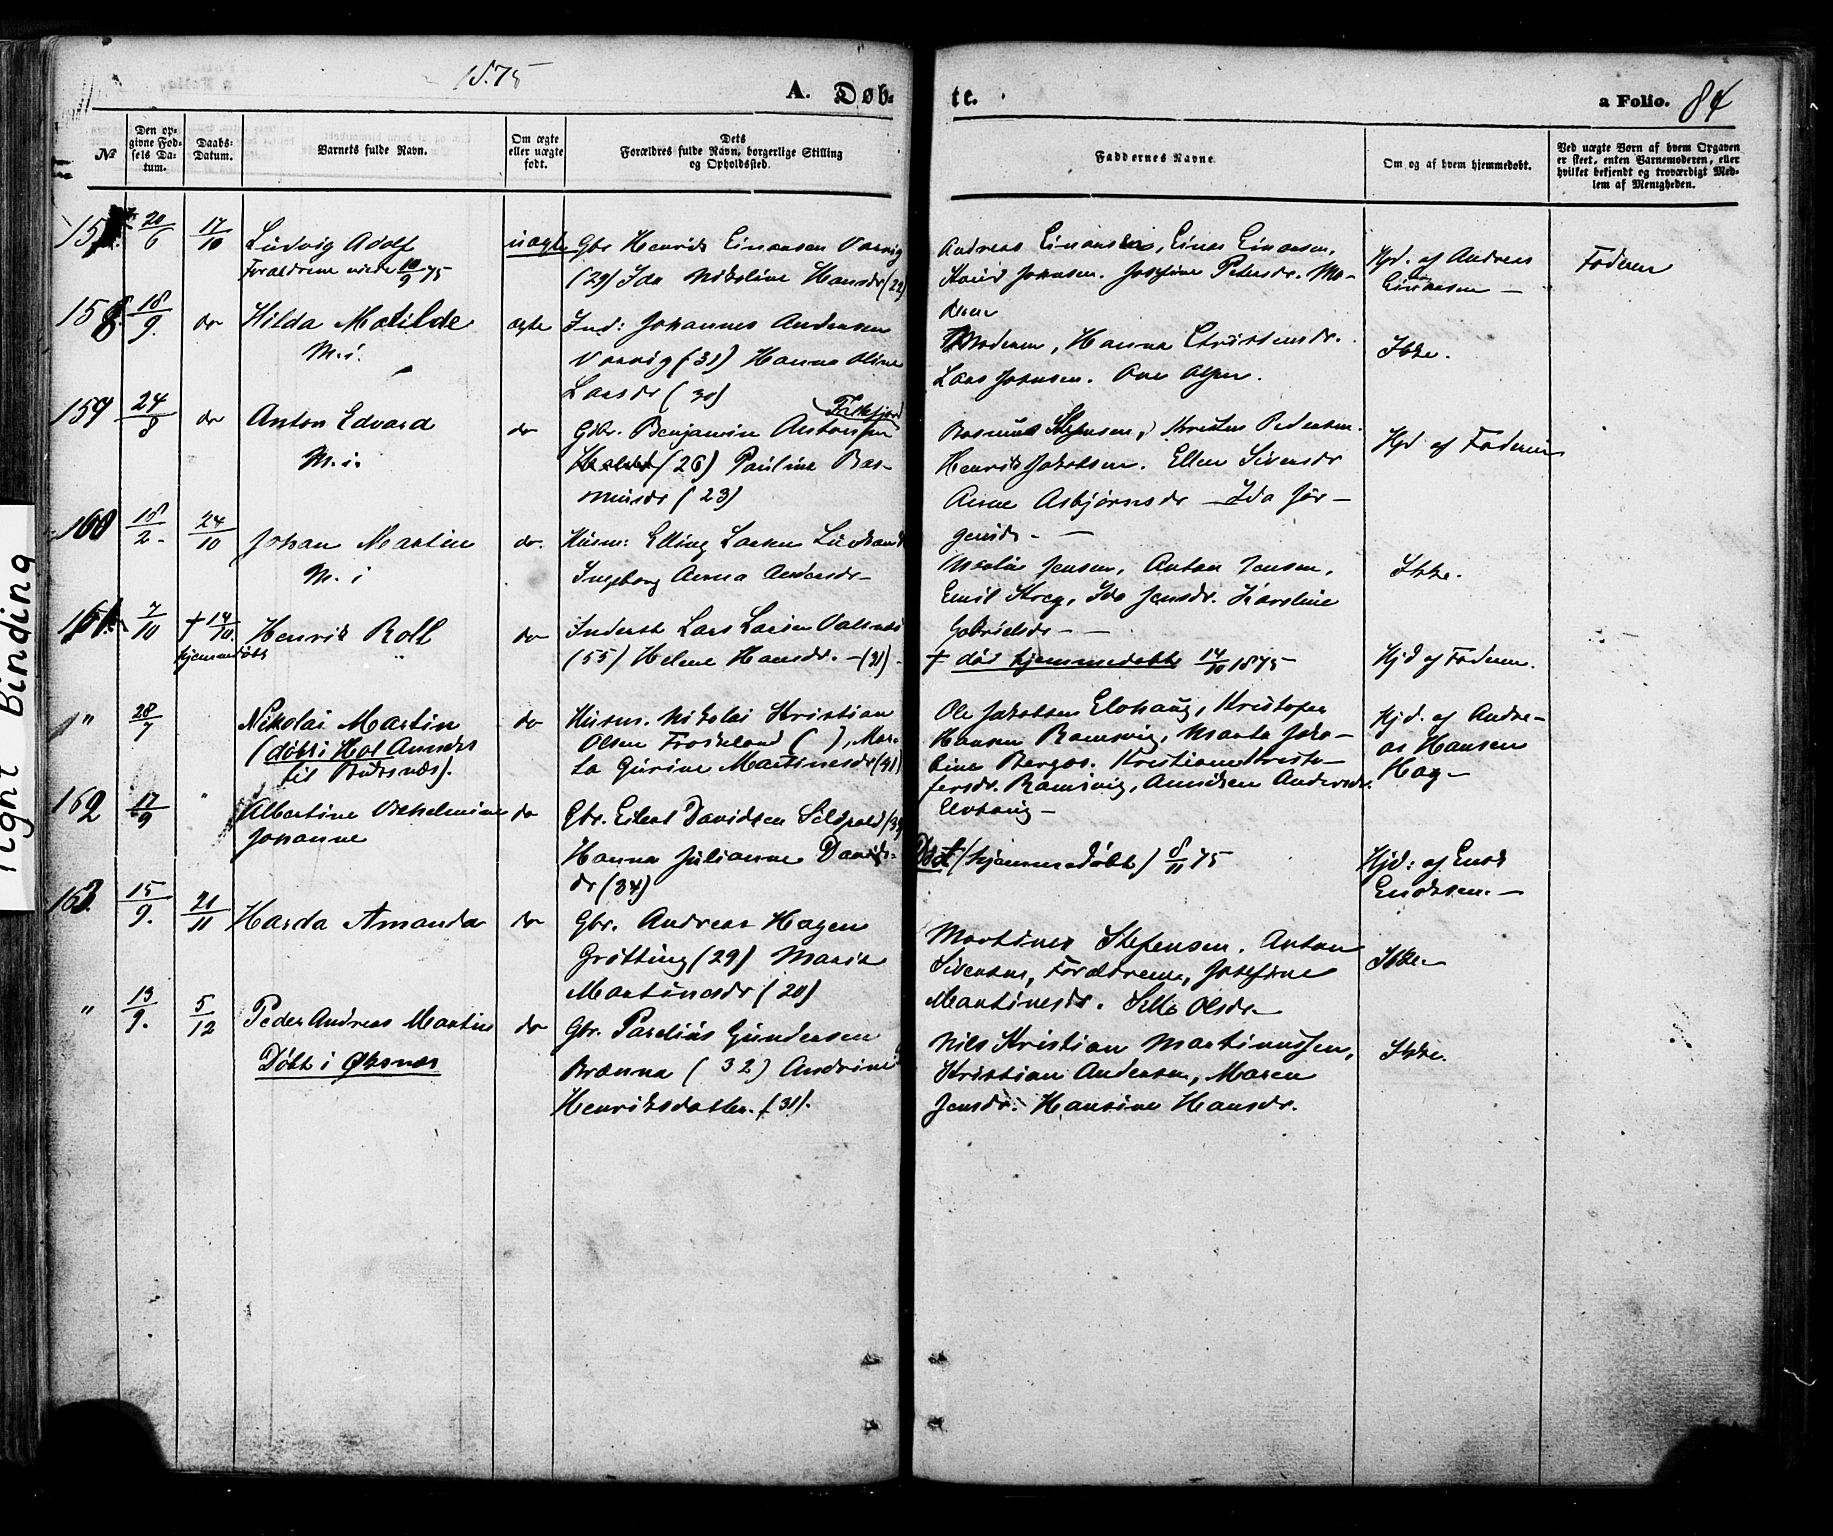 1875
A. Døb-
te.
a Folio. 84
№
Den op-
givne Fød-
sels Da-
tum.
Daabs-
Datum.
Barnets fulde Navn.
Om ægte
eller uægte
født.
Dets
Forældres fulde Navn, borgerlige Stilling
og Opholdssted.
Faddernes Navne
Om og af hvem hjemmedøbt.
Ved uægte Børn af hvem Opgaven
er skeet, enten Barnemoderen, eller
hvilket bekjendt og troværdigt Med-
lem af Menigheden.
20/6 17/10 Ludvig Adolf uægte Gbr Henrik Einarsen
Forældrene viede 10/9 75
(29) Ida Nikoline Hansdr (22)
Andreas Einarsen, Einar Einarsen,
Johnsen. Josefine Petersdr. Mo-
deren
Hjd. af Andreas
Einarsen —
Faderen
158 18/9. do Hilda Matilde ægte Ind: Johannes Andersen
M. i.
(31) Hanna Oline
Larsdr (30)
Moderen, Hanna Christensdr.
Lars Johnsen. Ove Olsen.
Ikke.
159 24/8 do Anton Edvard do Gbr. Benjamin Antonsen
M. i.
Fiskfjord
(26) Pauline Ras-
musdr (23)
Rasmus Stefensen, Kristen Pedersen.
Henrik Jakobsen. Ellen Sivensdr
Anne Asbjørnsdr — Ida Jør-
gensdr —
Hjd af Faderen
160 18/2. 24/10 Johan Martin do. Husm: Elling Larsen
M. i
Ingeborg Anna Andersdr —
Jensen, Anton Jensen,
Emil Krog, Ida Jensdr. Karoline
Gabrielsdr — —
Ikke.
161. 7/10 † 14/10. Henrik Roll do Inderst Lars Larsen Valsnes
hjemmedøbt
(55) Helene Hansdr. — (31).
† død hjemmedøbt 14/10 1875 —
Hjd af Faderen.
" 28/7 Nikolai Martin do Husm. Nikolai Kristian
(døbt i Hol Annex
til Buksnæs).
Olsen Froskeland ( ), Mar-
ta Gurine Martinesdr (41)
Ole Jakobsen Elvhaug, Kristofer
Hansen Ramsvig, Marta Jako-
bine Bergos. Kristiane Kristo-
fersdr. Ramsvig, Andersdr.
Elvhaug —
Hjd. af Andre-
as Hansen
Hag —
162 17/9 " Albertine Vilhelmine do Gbr. Eilert Davidsen
Johanne
Hanna Julianne Davids-
dr (34)
Død (hjemmedøbt) 8/11 75
Hjd: af Enok
Enoksen. —
163. 15/9. 21/11 Harda Amanda do Gbr. Andreas Hagen
Grøtting (29) Maria
Martinesdr (20)
Martines Stefensen. Anton
Sivertsen, Forældrene, Josefine
Martinesdr. Olsdr —
Ikke —
" 13/9. 5/12 Peder Andreas Martin do Gbr. Parelius Gundersen
Døbt i Øksnæs
Brænna (32) Andrine
Henriksdatter. (31).
Nils Kristian Martinussen,
Kristian Andersen, Maren
Jensdr. Hansine Hansdr.
Ikke.
Tight Binding